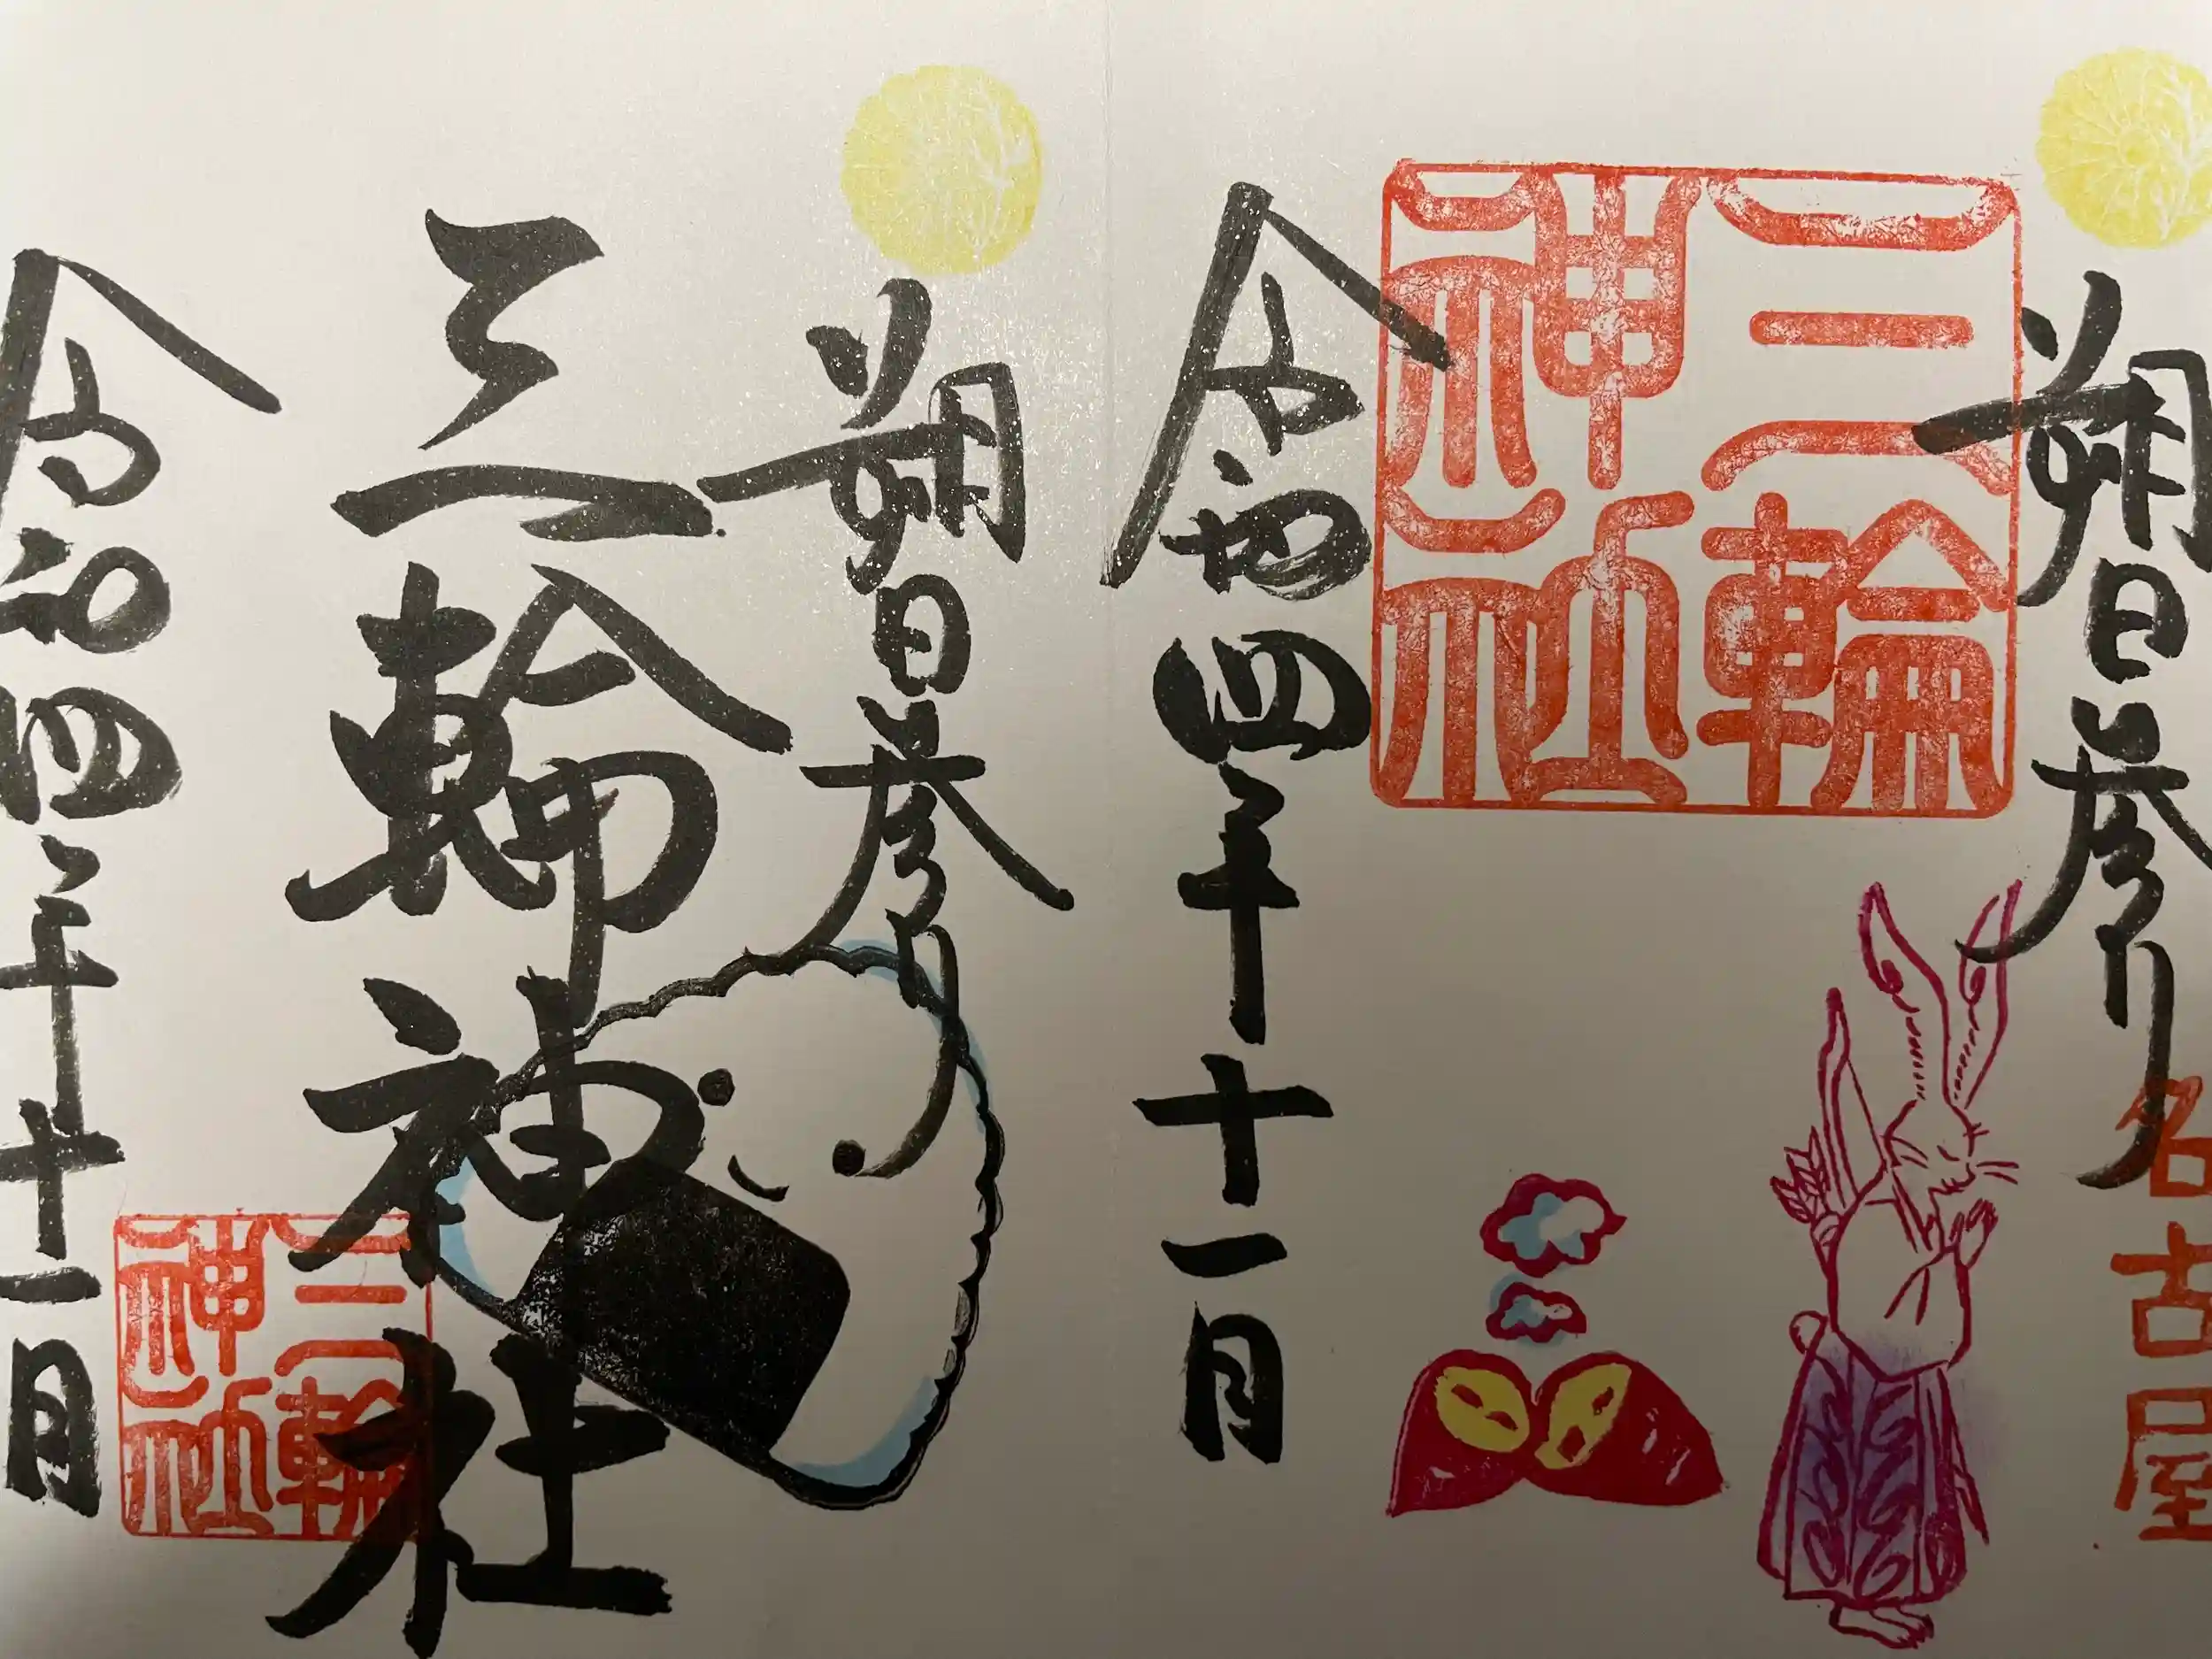 朔日参り
名古屋
三輪
神社
令和四年十一月
朔日参り
三輪神社
三輪
神社
令和四年十一月